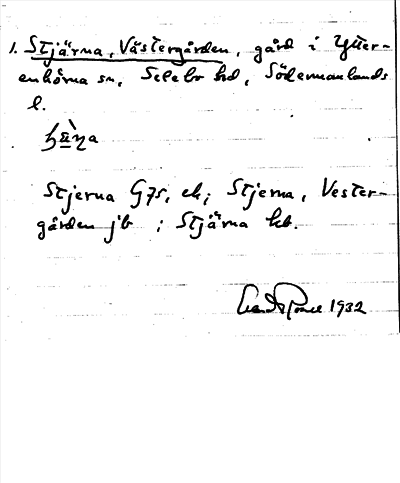 1. Stjärna, Västergården, gård i Ytter-
enhörna sn, Selebo hd, Södermanlands
l.
Stjerna G75, ek; Stjerna, Vester-
gården jb; Stjärna kb.
1932